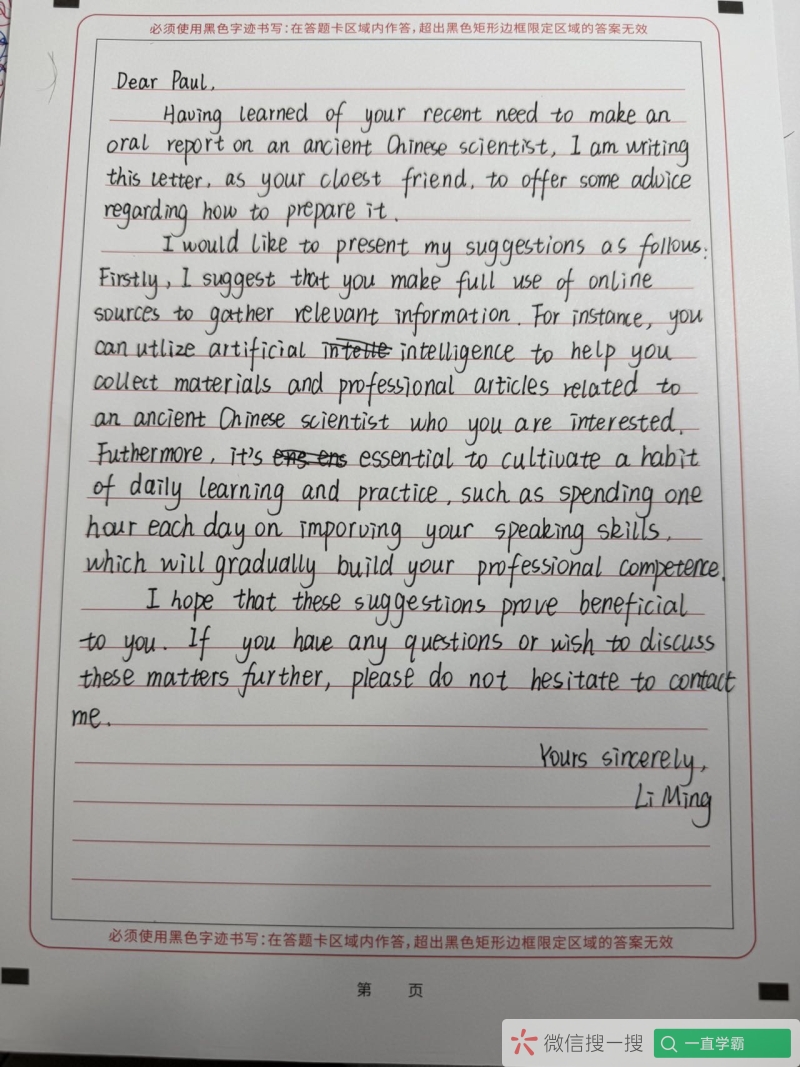 必须使用黑色字迹书写:在答题卡区域内作答,超出黑色矩形边框限定区域的答案无效
Dear Paul,
Having learned of your recent need to make an
oral report on an ancient Chinese scientist, I am writing
this letter, as your cloest friend, to offer some advice
regarding how to prepare it.
I would like to present my suggestions as follows:
Firstly, I suggest that you make full use of online
sources to gather relevant information. For instance, you
can utlize artificial intelligence to help you
collect materials and professional articles related to
an ancient Chinese scientist who you are interested.
Futhermore, it's essential to cultivate a habit
of daily learning and practice, such as spending one
hour each day on imporving your speaking skills,
which will gradually build your professional competence.
I hope that these suggestions prove beneficial
to you. If you have any questions or wish to discuss
these matters further, please do not hesitate to contact
me.
Yours sincerely,
Li Ming
必须使用黑色字迹书写:在答题卡区域内作答,超出黑色矩形边框限定区域的答案无效
第 页
微信搜一搜 一直学霸